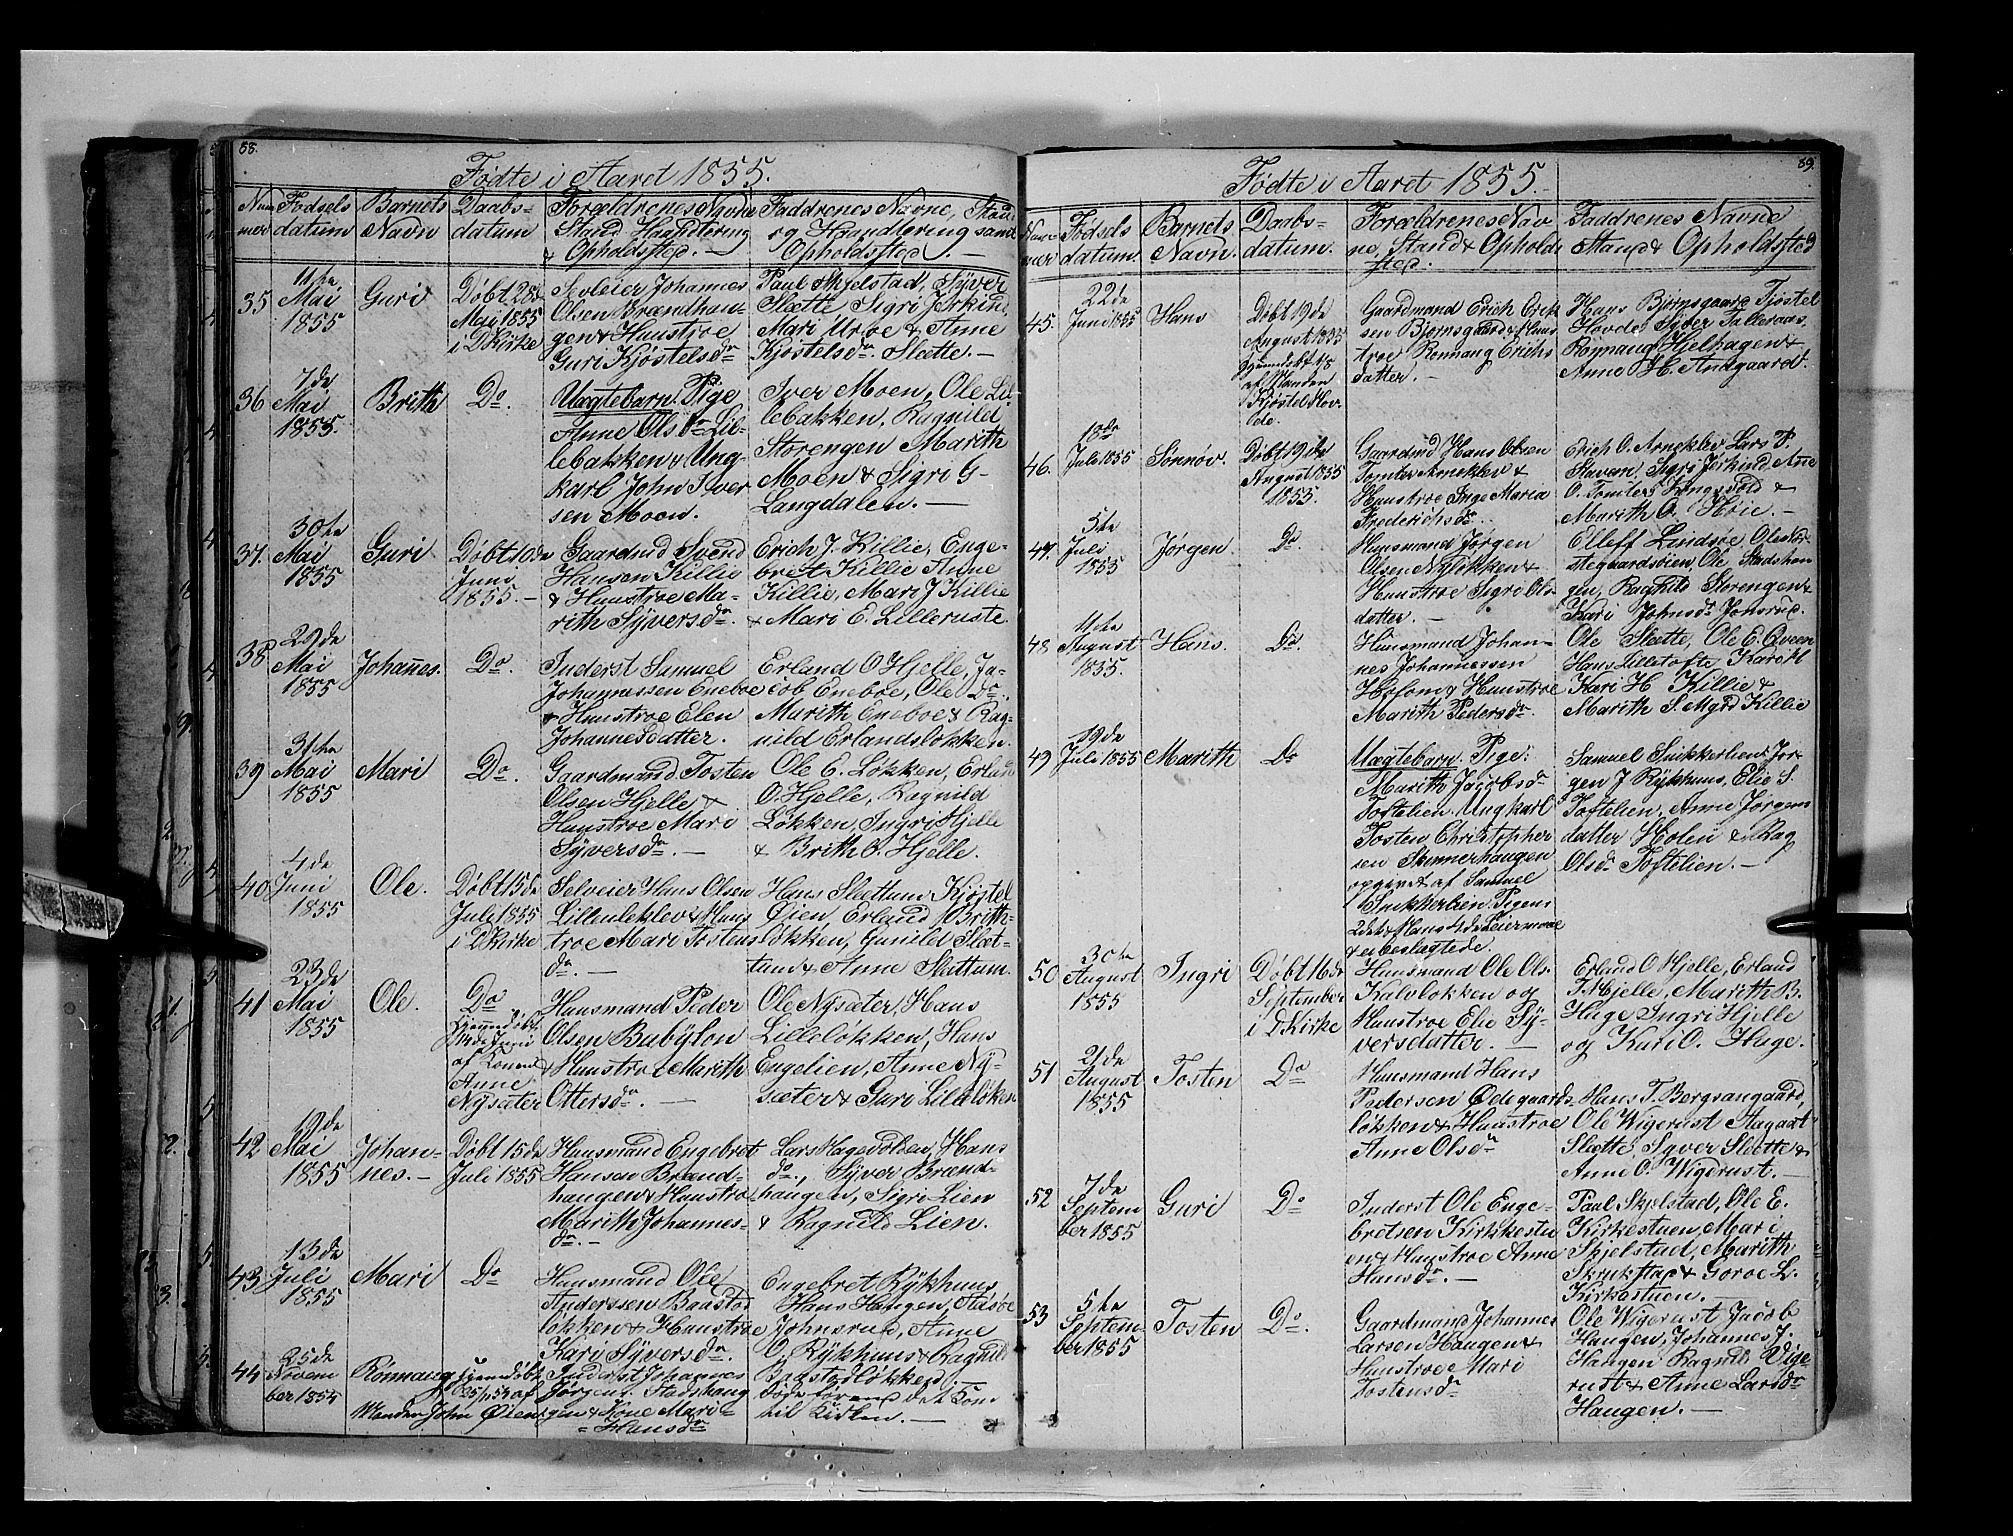 88.
Fødte i Aaret 1855.
Num
mer
Fødsels
datum
Barnets
Navn
Daabs-
datum
Forældrenes Navne
Stand Haandtering
& Opholdssted. —
Faddrenes Navne, Stand
og Haandtering samt
Opholdssted. —
35
11te
Mai
1855
Guri
Døbt 28de
Mai 1855
i D Kirke
Selveier Johannes
Olsen Brændhau-
gen & Huustroe
Guri Kjøstelsdr
Paul Skjelstad, Syver
Slette Sigri Jørkind
Mari Uroe & Anne
Kjøstelsdr. Slette. —
36
7de
Mai
1855.
Brith
Do.
Uægtebarn. Pige
Anne Olsdr Lil-
lebakken & Ung-
karl John Iver
sen Moen.
Iver Moen, Ole Lil-
lebakken, Ragnild
Storengen Marith
Moen & Sigri G-
Langdalen. —
37.
30te
Mai
1855
Guri
Døbt 10de
Juni
1855. —
Gaardmd Svend
Hansen Killie
& Huustroe Ma-
rith Syversdr.
Erich J. Killie, Enge-
bret Killie Anne
Killie, Mari J Killie
& Mari E. Lilleruste.
38
29de
Mai
1855
Johannes.
Do.
Inderst Samuel
Johannessen Eneboe
& Huustroe Elen
Johannesdatter.
Erland O Hjelle, Ja-
cob Eneboe, Ole Do.
Marith Eneboe & Rag-
nild Erlandsløkken.
39
31te
Mai
1855
Mari
Do.
Gaardmand Tosten
Olsen Hjelle &
Huustroe Mari
Syversdr. —
Ole E. Løkken, Erland
O. Hjelle, Ragnild
Løkken, Ingri Hjelle
& Brith O. Hjelle.
40
4de
Juni
1855
Ole.
Døbt 15de
Juli 1855
i D Kirke
Selveier Hans Olsen
Lilleuleklev & Huus
troe Mari Tostens
dr. —
Hans Slettum Kjøstel
Øien, Erland Brith-
løkken, Gunild Slet-
tum & Anne Slettum.
41
23de
Mai
1855
Ole.
Do
hjemmedøbt
14de Juni
af Konen
Anne
Nysæter
Huusmand Peder
Olsen Babylon
& Huustroe Marith
Ottersdr. —
Ole Nysæter, Hans
Lilleløkken, Hans
Engelien, Anne Ny-
sæter & Guri Lilleløken
42
19de
Mai
1855
Johan-
nes. —
Døbt 15de
Juli 1855
Huusmand Engebret
Hansen Brænd-
haugen & Huustroe
Marith Johannes-
dr. —
Lars Hagevolden, Hans
do., Syver Brænd-
haugen, Sigri Lien
& Ragnild Lien.
43
13de
Juli
1855
Mari
Do
Huusmand Ole
Anderssen Baastad
løkken & Huustroe
Kari Syversdr.
Engebret Rykhuus
Hans Haugen,
Johnsrud, Anne
O. Rykhuus & Ragnild
Badstadløkken.
44
25de
Novem
ber 1854
Rønnaug
hjemmedøbt
af
Manden John Øien
Inderst Johannes
Jørgens. Stadshaug
gen & Kone Mari
Hansdr
døde førend det kom
til Kirken. —
89.
Fødte i Aaret 1855.
Num-
mer
Fødsels
datum.
Barnets
Navn.
Daabs-
datum.
Forældrenes Nav-
ne, Stand & Opholds
sted.
Faddrenes Navne
Stand & Opholdssted
45.
22de
Juni 1855
Hans
Døbt 19de
August 1855
hjemmedøbt
af Manden
Kjøstel Hov-
de.
Gaardmand Erich Erik
sen Bjørnsgaard & Huus
troe Rønnaug Erichs
datter. —
Hans Bjørnsgaard Tjøstel
Hovde Syver Talleraas
Rønnaug Hielhagen &
Anne H. Andgaard.
46.
18de
Juli 1855
Sønnøv.
Døbt 19de
August 1855
1855.
Gaardmd Hans Olsen
Tomter Arneklev &
Huustroe Inge Maria
Frederichsdr.
Erich O. Arneklev Lars P.
Stavan, Sigri Jørkind Ane
O. Tomter, &
Marith O. Hoie. —
47.
5te
Juli
1855
Jørgen.
Do.
Huusmand Jørgen
Olsen Nyløkken &
Huustroe Sigri Ols-
datter. —
Elleff Lindsøe Ole
stegaardsøien, Ole Stadshau
gen, Raghild Storengen &
Kari Johnsdr Jonsrud.
48
11te
August
1855.
Hans.
Do.
Huusmand Johan-
nes Johannessen
Holom & Huustroe
Marith Pedersdr.
Ole Slette, Ole E. Qveen
Hans Lilletofte Kari Kl
Kari H. Killie &
Marith S. Myrd Killie
49
19de
Juli 1855
Marith
Do
Uægtebarn. Pige:
Marith Jacobsdr
Toftelien. Ungkarl
Tosten Christopher
sen Skinnerhaugen
opgivet af Samuel
Snikkerlien. Pigens
2det & Hans 4de Leiermaal
& ei beslægtede.
Samuel Snikkerlien, Jør-
gen J Rykhuus, Elie S.
Toftelien, Anne Jørgens
datter Holen & Rag
Olsdr Toftelien. —
50
30te
August
1855
Ingri
Døbt 16de
September
i D Kirke
Huusmand Ole Ols.
Kalvløkken og
Huustroe Elie Sy-
versdatter. —
Erland O Hjelle, Erland
T. Hjelle, Marith B.
Hage Ingri Hjelle
og Kari O. Hage.
51
21de
August
1855
Tosten
Do
Huusmand Hans
Pedersen Ødegaards
løkken & Huustroe
Anne Olsdr
Hans T. Bergsangaard,
Ole Wigerust Aagaat
Slette, Syver Slette &
Anne O. Wigerust. —
52
7de
Septem
ber 1855
Guri
Do
Inderst Ole Enge-
bretsen Kirkestu
en & Huustroe Anne
Hansdr. —
Paul Skjelstad, Ole E.
Kirkestuen Mari
Skjelstad, Marith
Skrukstad & Goroe L.
Kirkestuen. —
53
5te
Septem-
ber 1855
Tosten
Do.
Gaardmand Johannes
Larsen Haugen &
Huustroe Mari
Tostensdr
Ole Wigerust Jacob
Haugen, Johannes J.
Haugen Ragnild Vige
rust & Anne Larsdr
Haugen. —